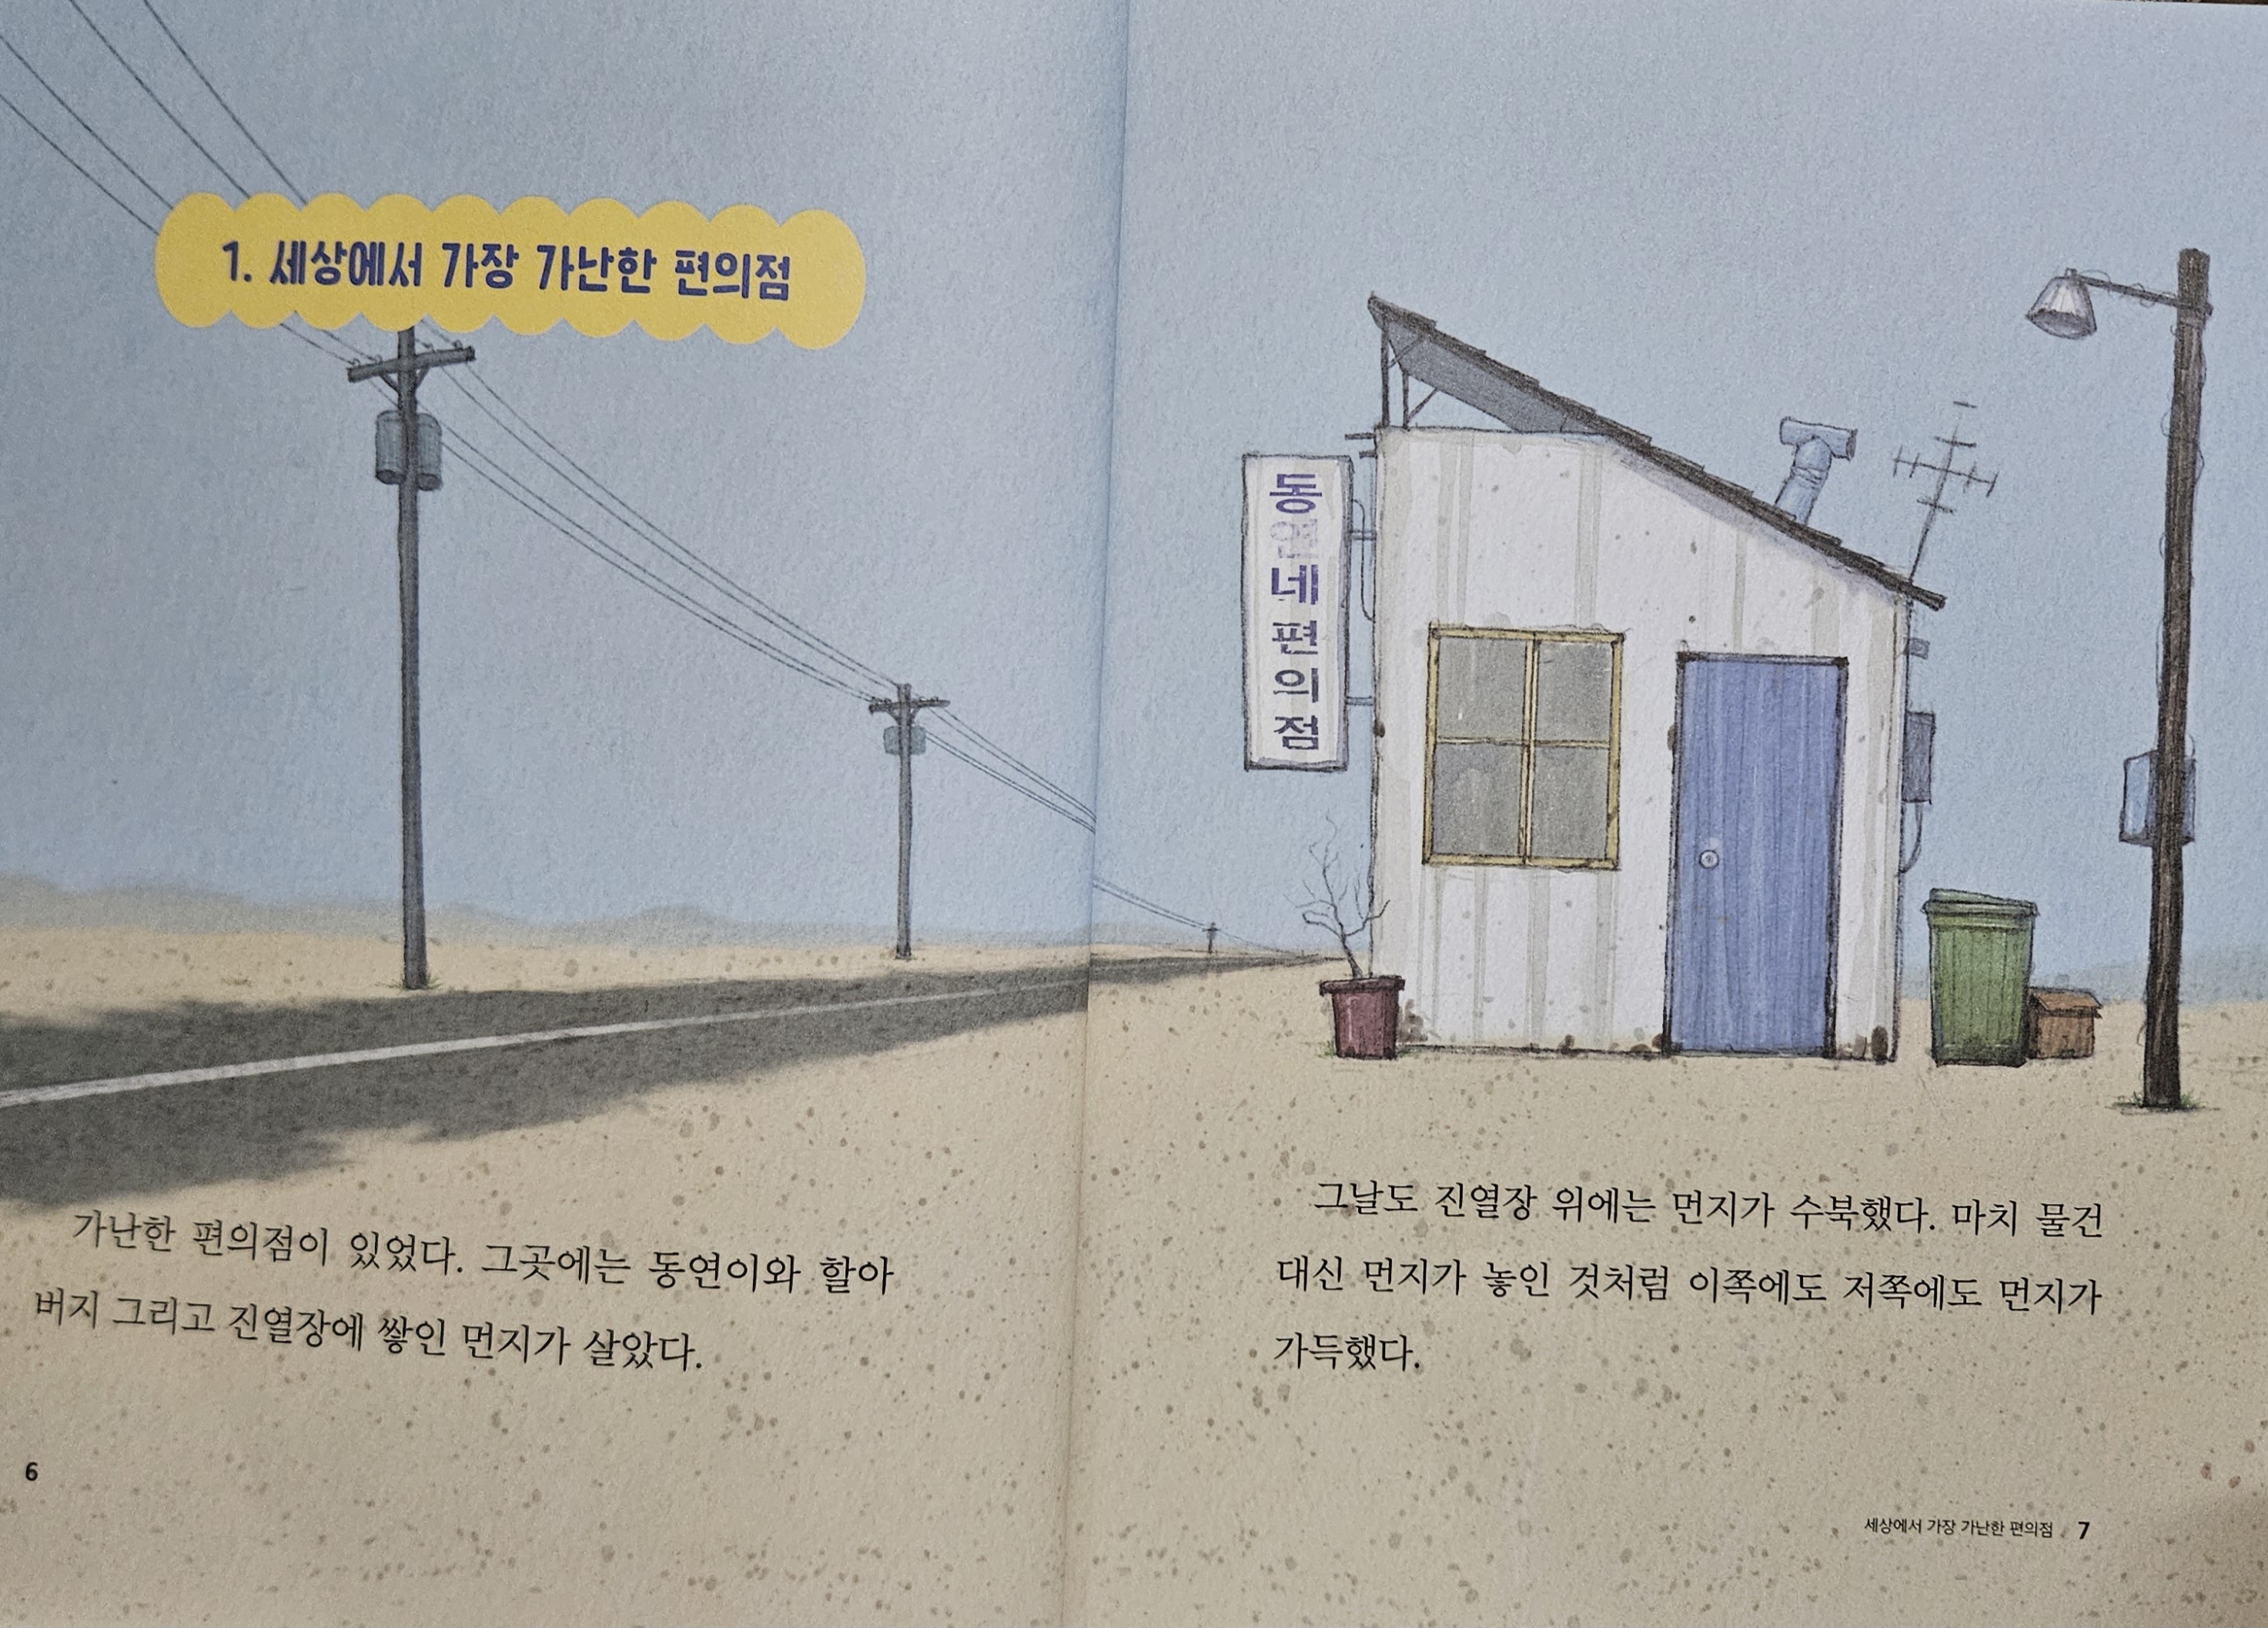 1. 세상에서 가장 가난한 편의점
가난한 편의점이 있었다. 그곳에는 동연이와 할아
버지 그리고 진열장에 쌓인 먼지가 살았다.
6
동
네
편
의
점
그날도 진열장 위에는 먼지가 수북했다. 마치 물건
대신 먼지가 놓인 것처럼 이쪽에도 저쪽에도 먼지가
가득했다.
세상에서 가장 가난한 편의점 7